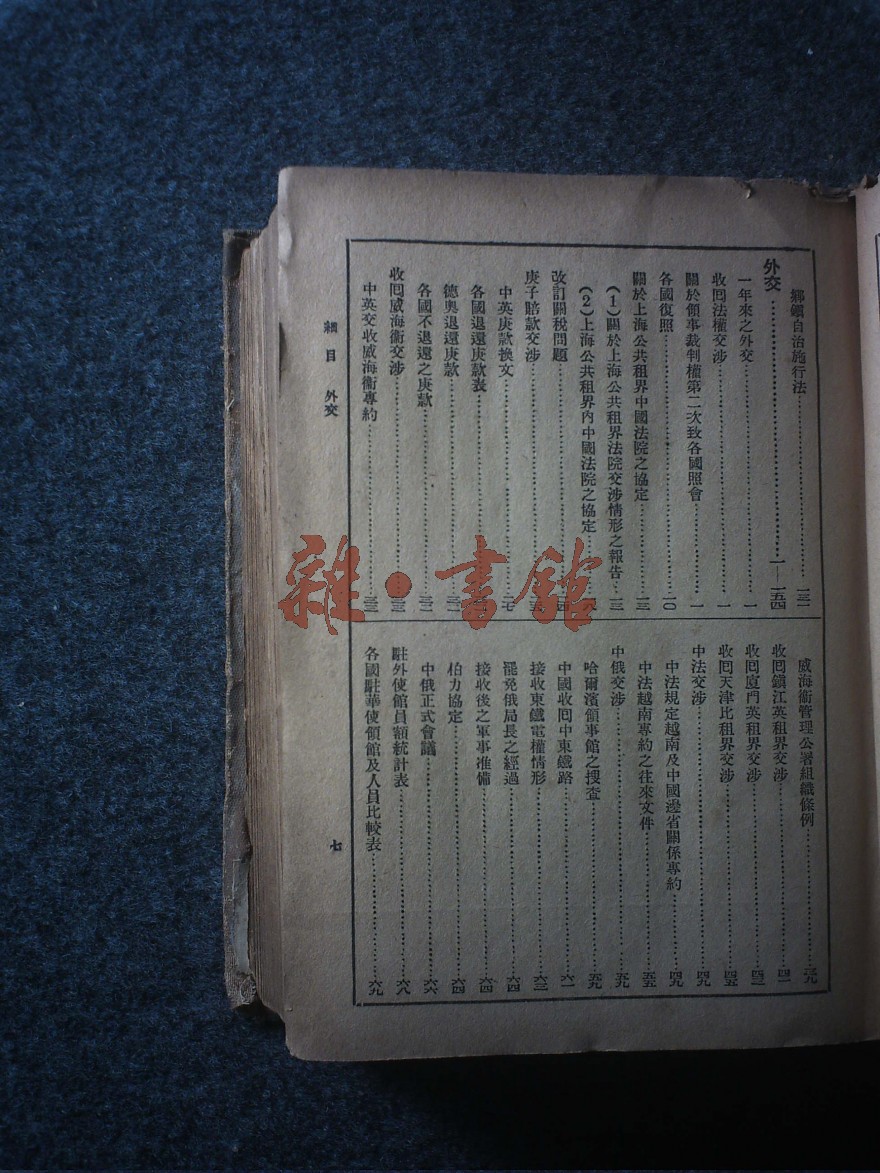 鄉鎮自治施行法……一三一
外交……一—一五四
一年來之外交……一
收回法權交涉……一
關於領事裁判權第二次致各國照會……一
各國復照……一〇
關於上海公共租界中國法院之協定……一三
(1)關於上海公共租界法院交涉情形之報告……一三
(2)上海公共租界內中國法院之協定
改訂關稅問題
庚子賠款交涉
中英庚款換文……二七
各國退還庚款表
德奧退還庚款
各國不退還之庚款……三二
收回威海衞交涉……三三
中英交收威海衞專約……三三
威海衞管理公署組織條例……三九
收回鎮江英租界交涉……四一
收回廈門英租界交涉……四三
收回天津比租界交涉……四五
中法交涉……四九
中法規定越南及中國邊省關係專約……四九
中法越南專約之往來文件……五五
中俄交涉……五九
哈爾濱領事館之搜查……五九
中國收回中東鐵路……六一
接收東鐵電權情形……六三
罷免俄局長之經過……六四
接收後之軍事准備……六四
伯力協定……六四
中俄正式會議……六六
駐外使館員額統計表……六八
各國駐華使領館及人員比較表……六九
細目 外交
七
雜·書館